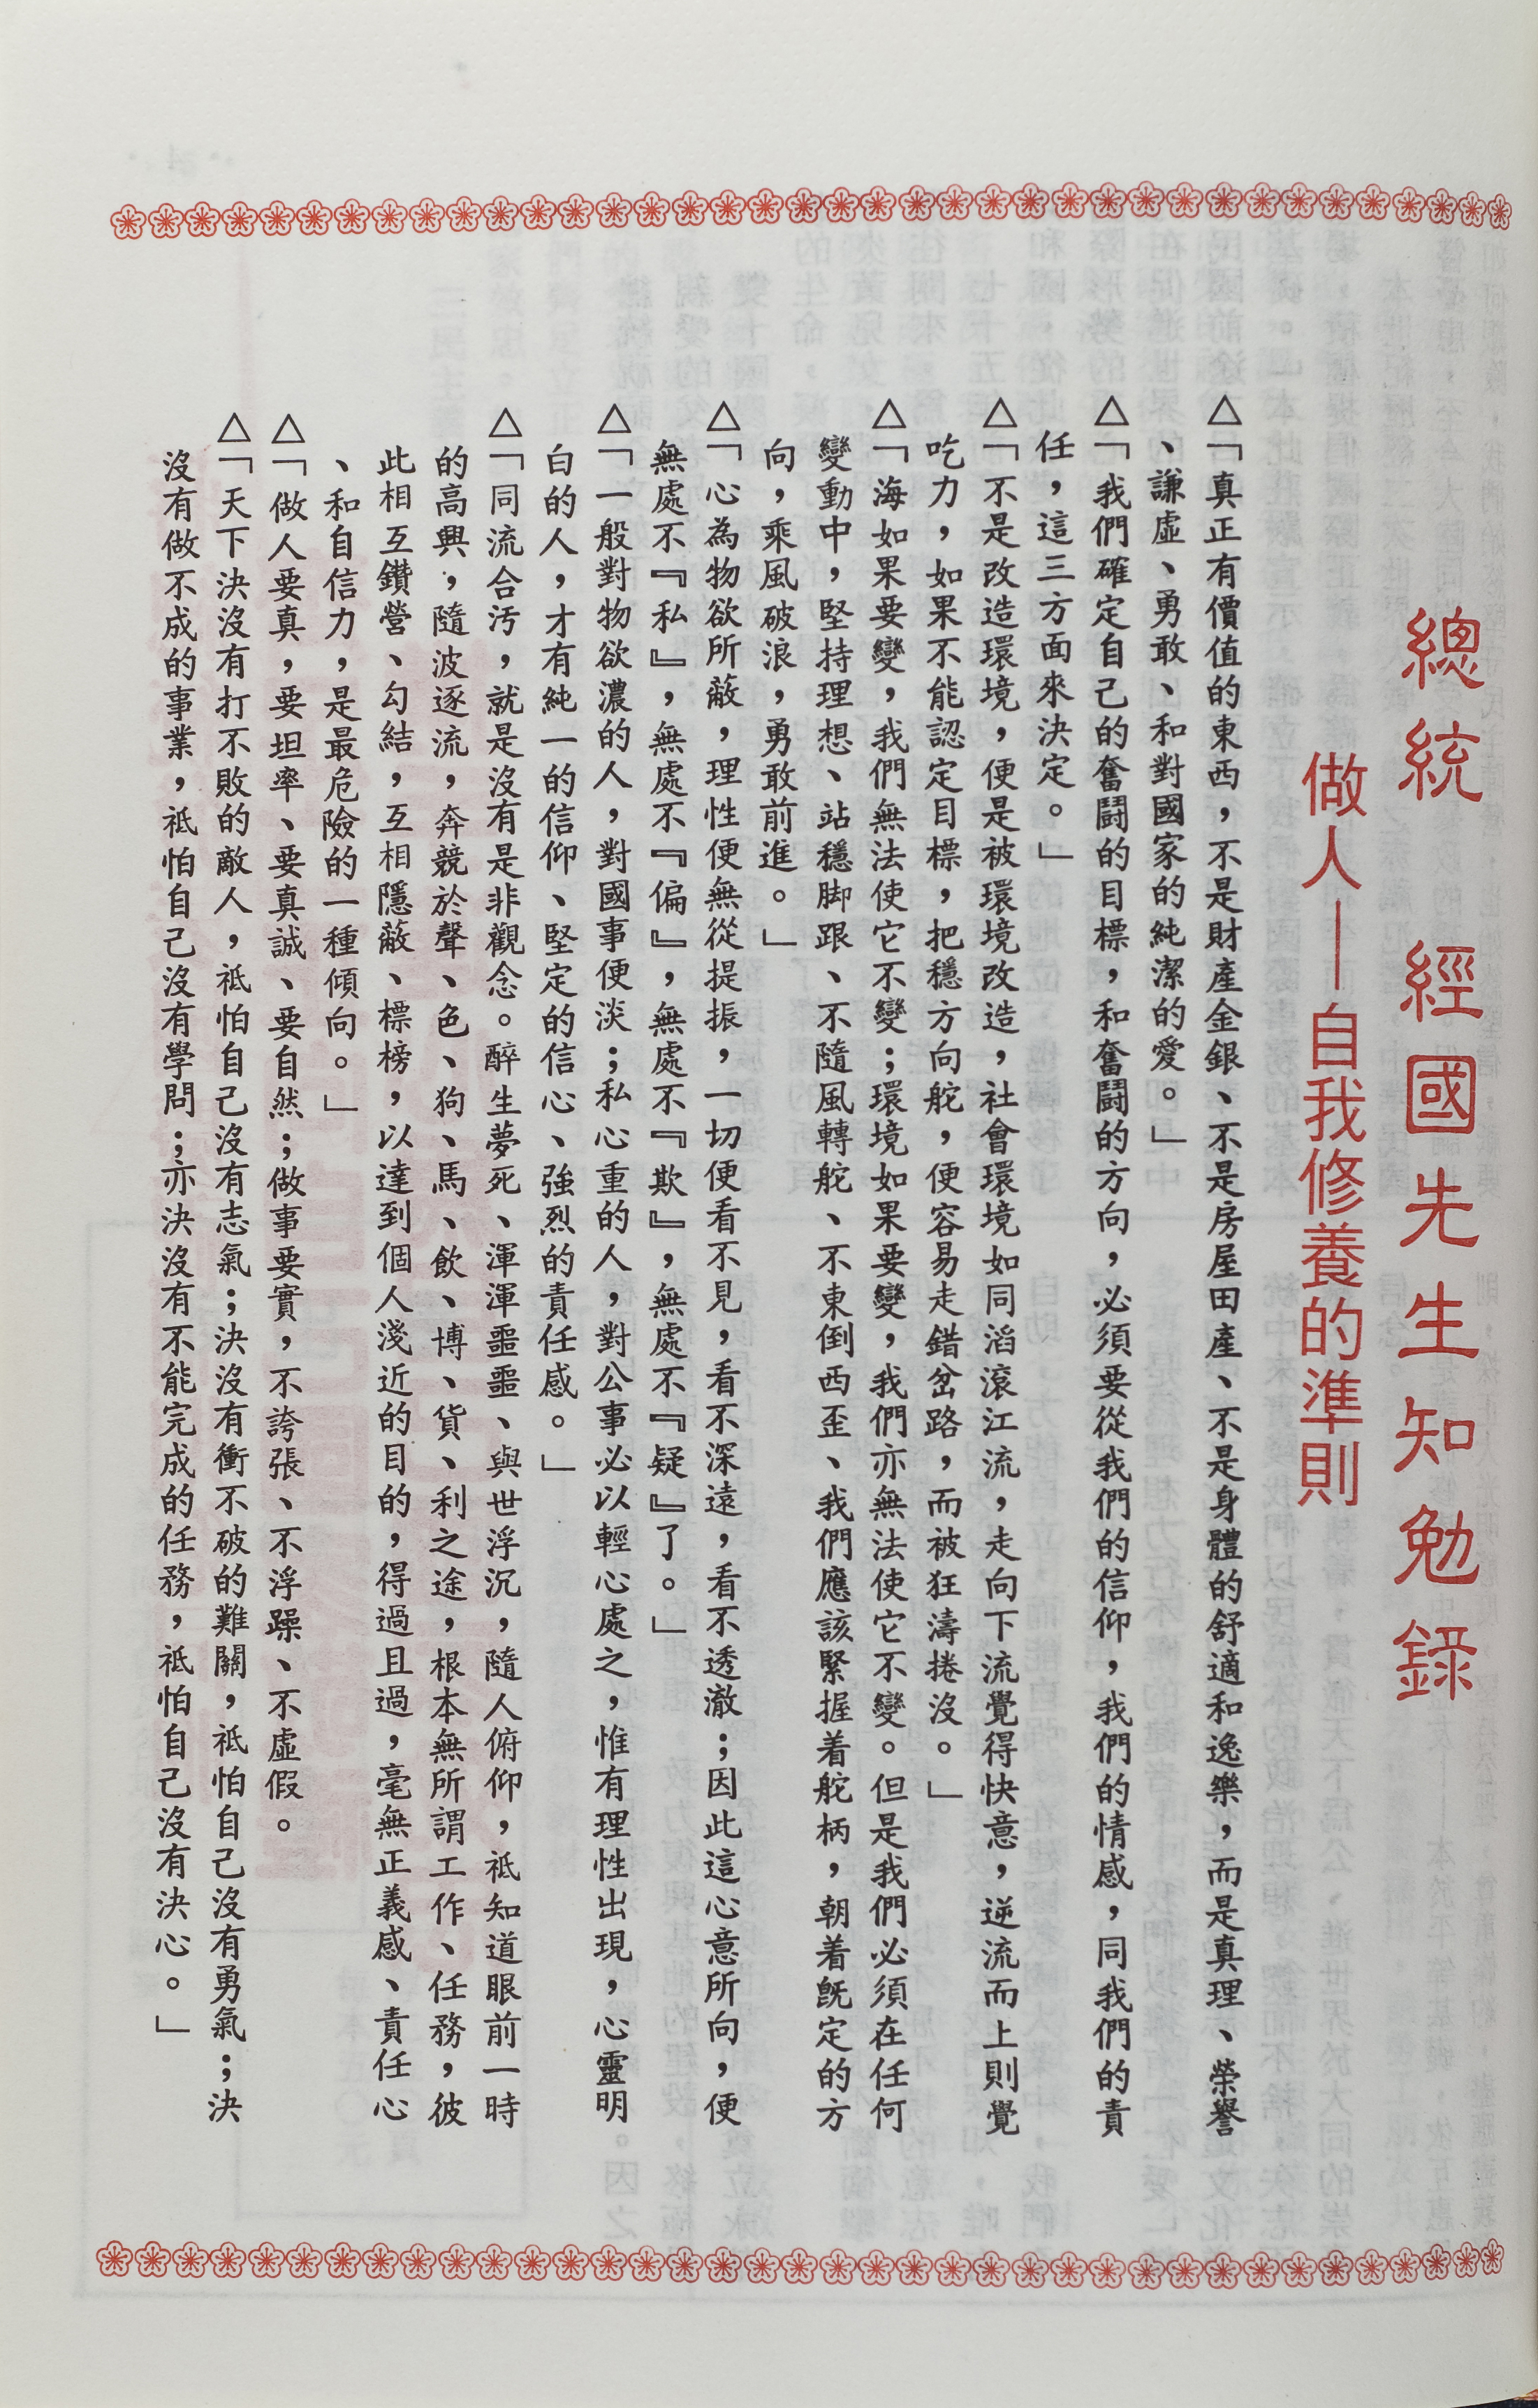 總統　經國先生知勉錄
做人——自我修養的準則
△「真正有價值的東西，不是財產金銀、不是房屋田產、不是身體的舒適和逸樂，而是真理、榮譽
、謙虛、勇敢、和對國家的純潔的愛。」
△「我們確定自己的奮鬪的目標，和奮鬪的方向，必須要從我們的信仰，我們的情感，同我們的責
任，這三方面來決定。」
△「不是改造環境，便是被環境改造，社會環境如同滔滾江流，走向下流覺得快意，逆流而上則覺
吃力，如果不能認定目標，把穩方向舵，便容易走錯岔路，而被狂濤捲沒。」
△「海如果要變，我們無法使它不變；環境如果要變，我們亦無法使它不變。但是我們必須在任何
變動中，堅持理想、站穩脚跟、不隨風轉舵、不東倒西歪、我們應該緊握着舵柄，朝着既定的方
向，乘風破浪，勇敢前進。」
△「心為物欲所蔽，理性便無從提振，一切便看不見，看不深遠，看不透澈；因此這心意所向，便
無處不『私』，無處不『偏』，無處不『欺』，無處不『疑』了。」
△「一般對物欲濃的人，對國事便淡；私心重的人，對公事必以輕心處之，惟有理性出現，心靈明
白的人，才有純一的信仰、堅定的信心、強烈的責任感。」
△「同流合汚，就是沒有是非觀念。醉生夢死、渾渾噩噩、與世浮沉，隨人俯仰，祗知道眼前一時
的高興，隨波逐流，奔競於聲、色、狗、馬、飲、博、貨、利之途，根本無所謂工作、任務，彼
此相互鑽營、勾結，互相隱蔽、標榜，以達到個人淺近的目的，得過且過，毫無正義感、責任心
、和自信力，是最危險的一種傾向。」
△「做人要真，要坦率、要真誠、要自然；做事要實，不誇張、不浮躁、不虛假。
△「天下決沒有打不敗的敵人，祗怕自己沒有志氣；決沒有衝不破的難關，祗怕自己沒有勇氣；決
沒有做不成的事業，祗怕自己沒有學問；亦決沒有不能完成的任務，祗怕自己沒有決心。」